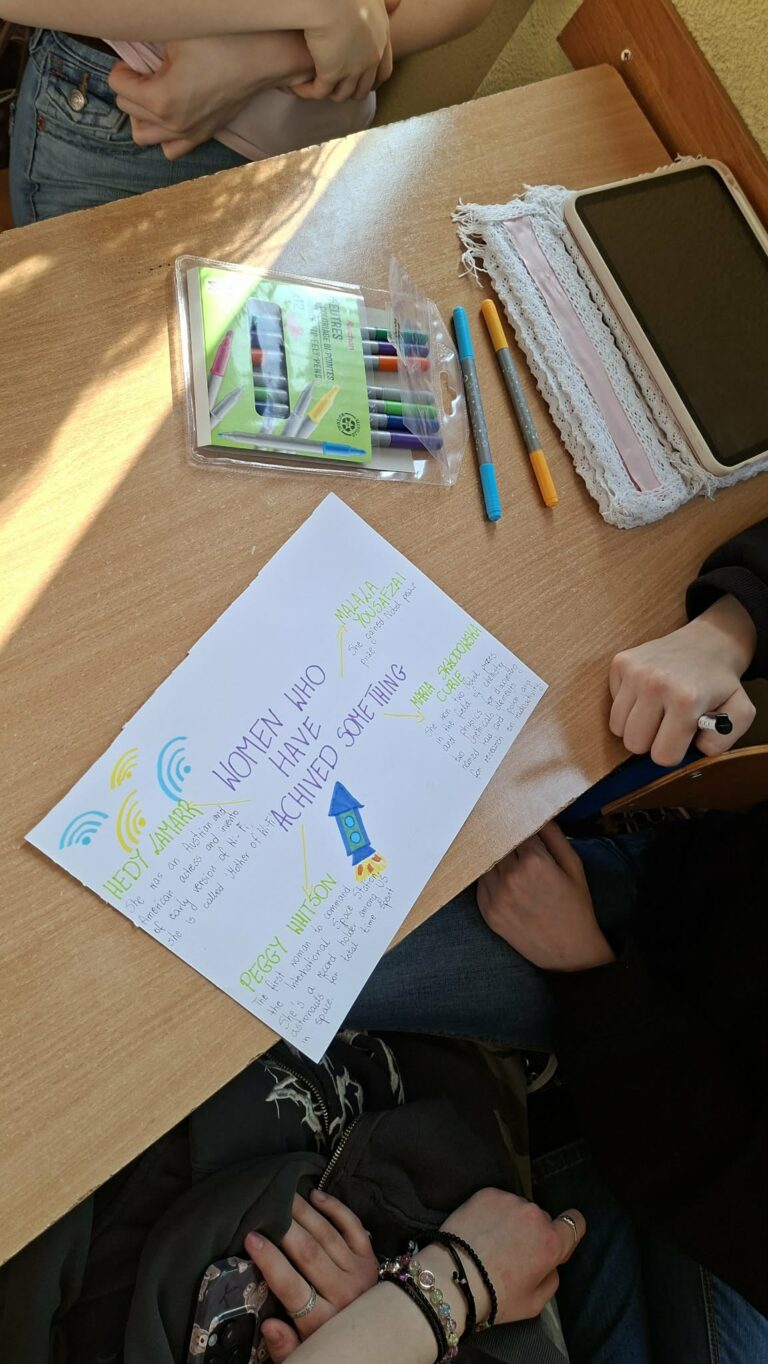 WOMEN WHO
HAVE
ACHIVED SOMETHING
MALALA
YOUSAFZAI
She gained Nobel peace
prize
MARIA SKŁODOWSKA
CURIE
She won two Nobel prizes
in the field of chemistry
and physics for discovering
two chemicals elements
named rad and polon and
for research on radioactivity
HEDY LAMARR
She was an Austrian and
American actress and invente
of early version of Wi-Fi,
she is called Mother of Wi-Fi
PEGGY WHITSON
The first woman to command
the International Space Station
She's a record holder among US
astronauts for total time spent
in space.
FEUTRES
COLORIAGE BI-POINTES
FELT-PENS